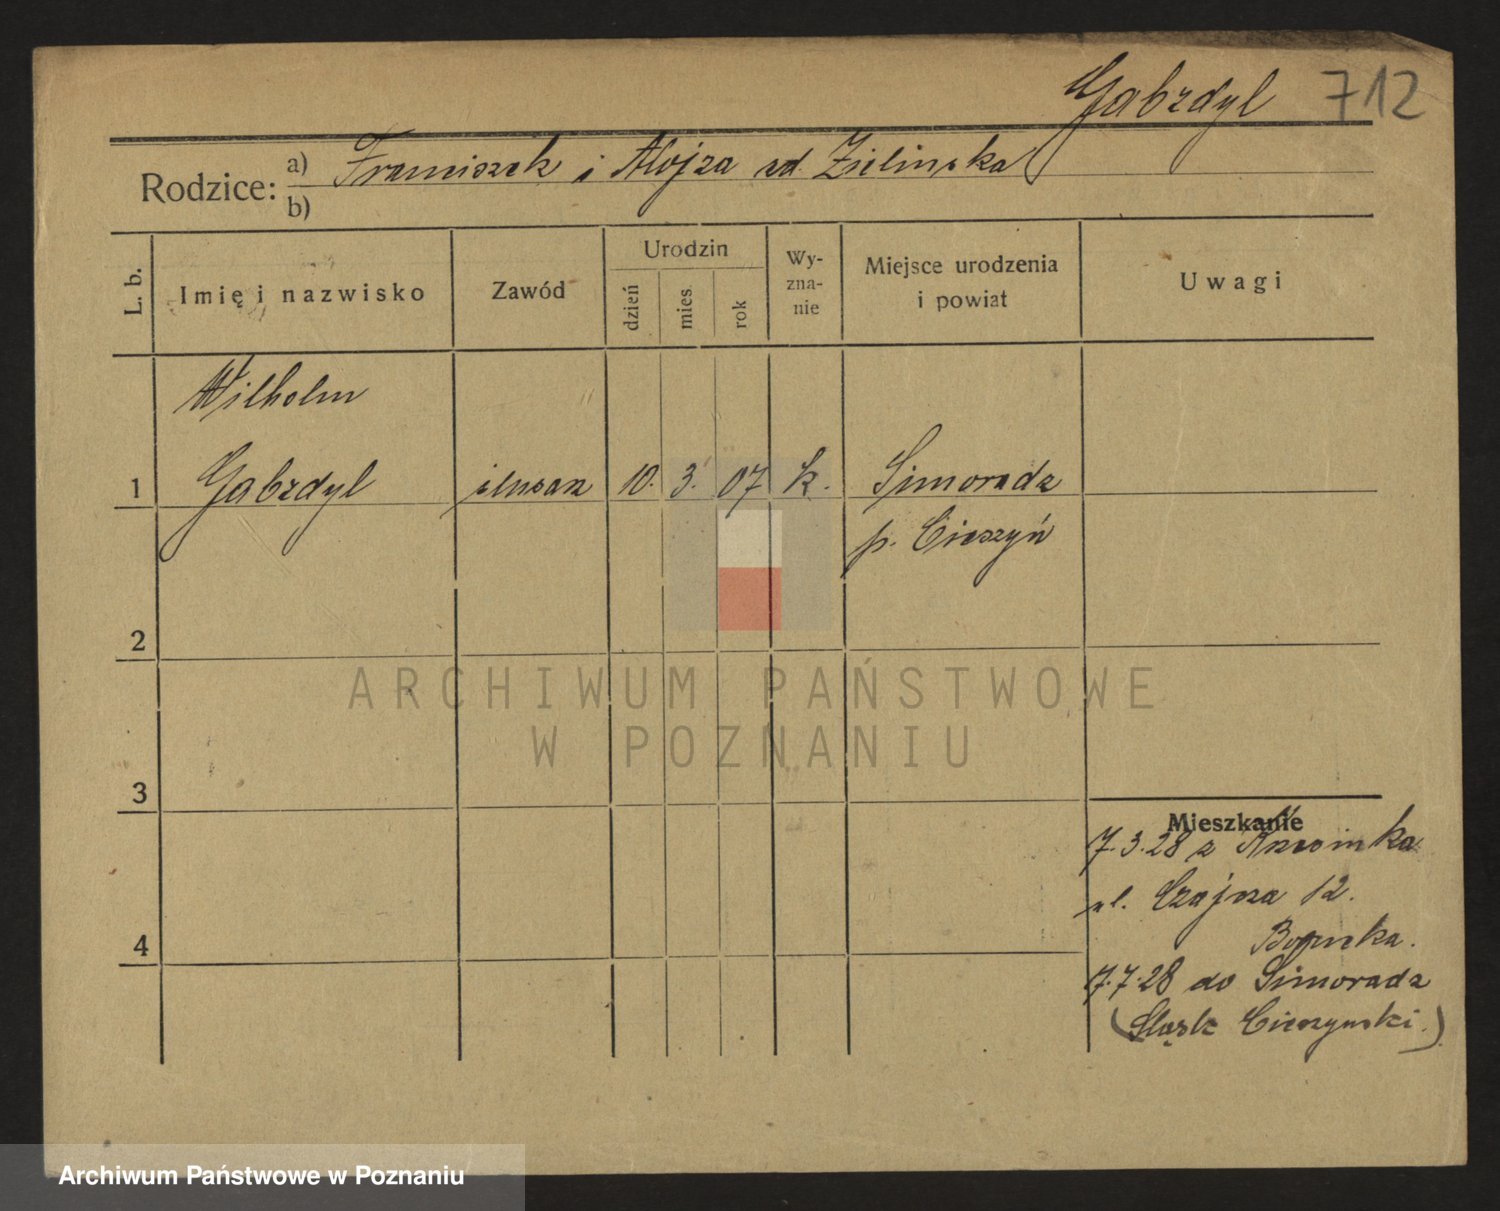 Gabzdyl 712
Rodzice: a) Franciszek i Alojza zd. Zielinska
b)
L. b. Imię i nazwisko Zawód Urodzin dzień mies. rok Wyznanie Miejsce urodzenia i powiat Uwagi
Wilhelm
1 Gabzdyl ślusarz 10. 3. 07 k. Simoradz
p. Cieszyń
2
ARCHIWUM PAŃSTWOWE
W POZNANIU
3
Mieszkanie
7.3.28 z Krzwinka
ul. Czajcza 12.
4
7.7.28 do Simoradz
(Śląsk Cieszynski.)
Archiwum Państwowe w Poznaniu